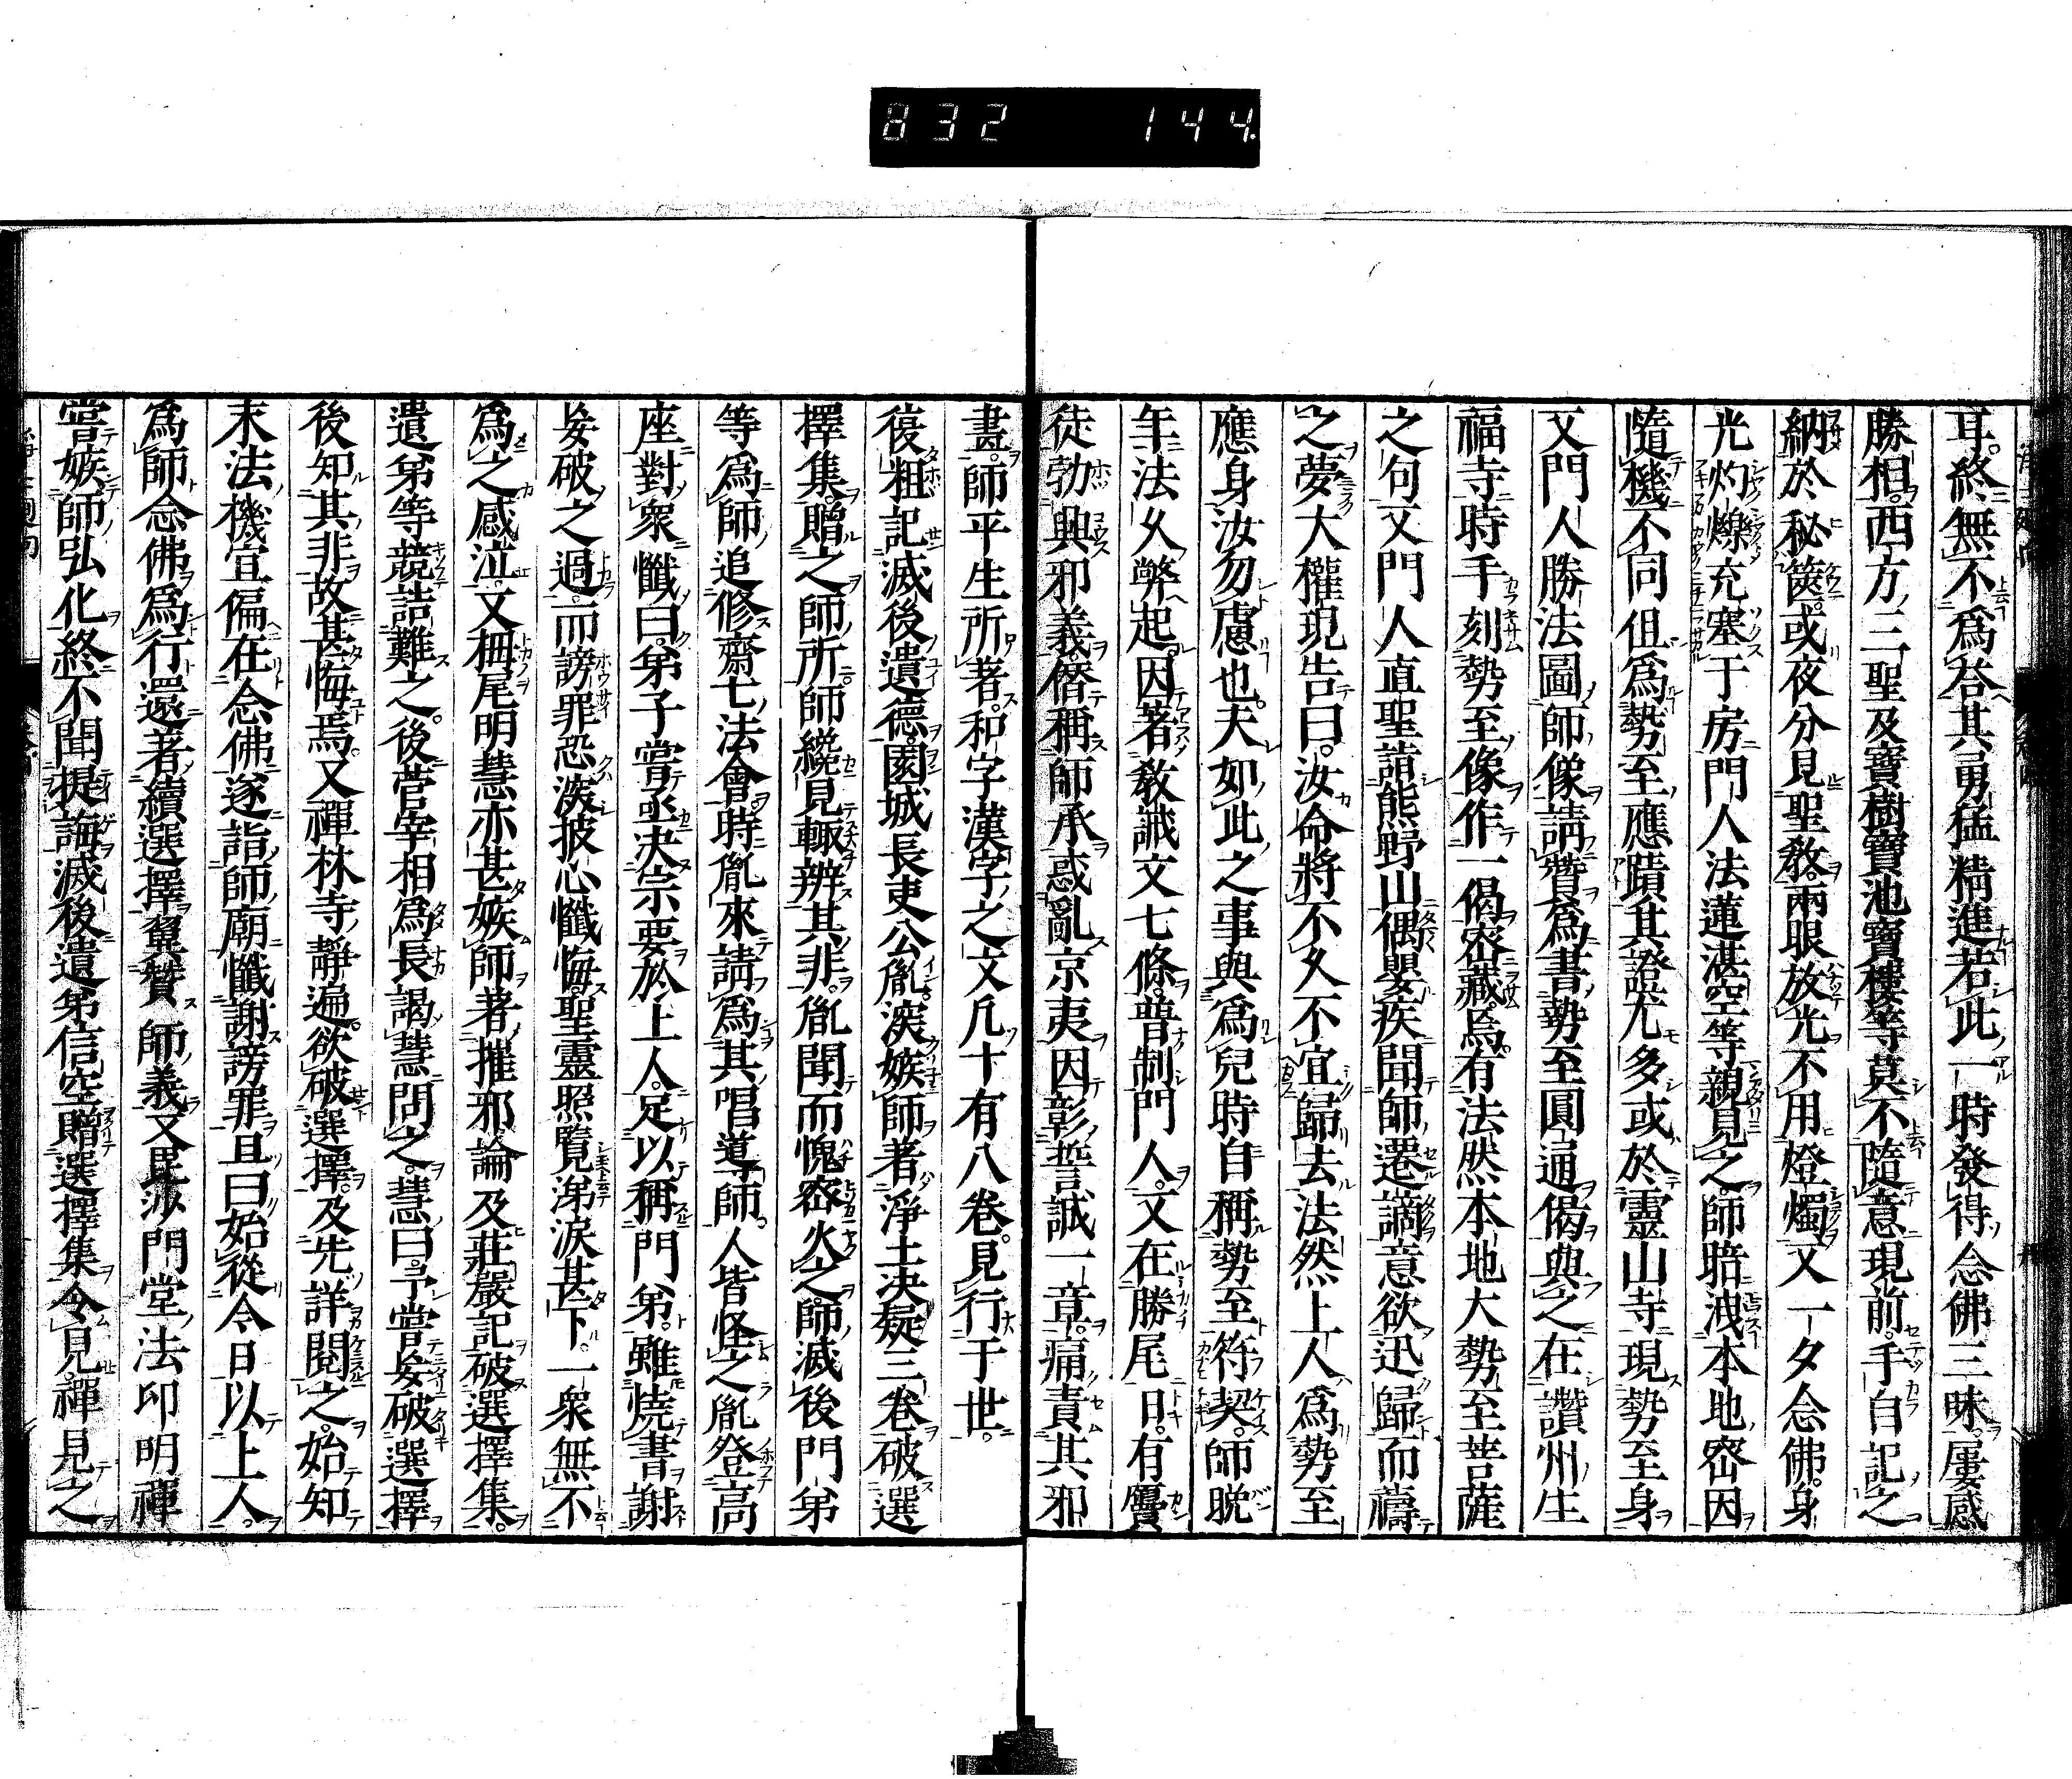 832 144
耳。終無不爲。咎其勇猛精進若此一時發得念佛三昧。屢感
勝相。西方三聖及寶樹寶池寶樓等莫不隨意現前。手自記之
納於秘篋。或夜分見聖教。兩眼放光不用燈燭。又一夕念佛。身
光灼爍充塞于房。門人法蓮湛空等親見之。師暗洩本地密因
隨機不同。但爲勢至應蹟其證尤多。或於靈山寺現勢至身
又門人勝法圖師像請贊。爲書勢至圓通偈與之。在讚州生
福寺時手刻勢至像作一偈密藏焉。有法然本地大勢至菩薩
之句。又門人直聖詣熊野山偶嬰疾。聞師遷謫意欲迅歸而禱
之。夢大權現告曰。汝命將不久不宜歸去。法然上人爲勢至
應身汝勿慮也。夫如此之事與爲兒時自稱勢至符契。師晚
年法久弊起。因著教誡文七條。普制門人。又在勝尾日。有贋
徒勃興邪義。僭稱師承惑亂京夷。因彰誓誡一章。痛責其邪
畫。師平生所著。和字漢字之文凡十有八卷。見行于世。
復粗記滅後遺德。園城長吏公胤深嫉師著淨土決疑三卷破選
擇集。贈之師所。師纔見輙辨其非。胤聞而愧密火之。師滅後門弟
等爲師追修齋七法會。時胤來請爲其唱導師。人皆怪之。胤登高
座對衆懺曰。弟子嘗亟決宗要於上人。足以稱門弟。雖燒書謝
妄破之過。而謗罪恐深披心懺悔。聖靈照覽涕淚甚下。一衆無不
爲之感泣。又栂尾明慧亦甚嫉師著摧邪論及莊嚴記破選擇集。
遺弟等競詰難之。後菅宰相爲長謁慧問之。慧曰。予嘗妄破選擇
後知其非。故甚悔焉。又禪林寺靜遍。欲破選擇。及先詳閱之。始知
末法機宜偏在念佛。遂詣師廟懺謝謗罪且曰。始從今日以上人。
爲師念佛爲行。還著續選擇翼贊師義。又毘沙門堂法印明禪
嘗嫉師弘化終不聞提誨。滅後遺弟信空贈選擇集令見。禪見之